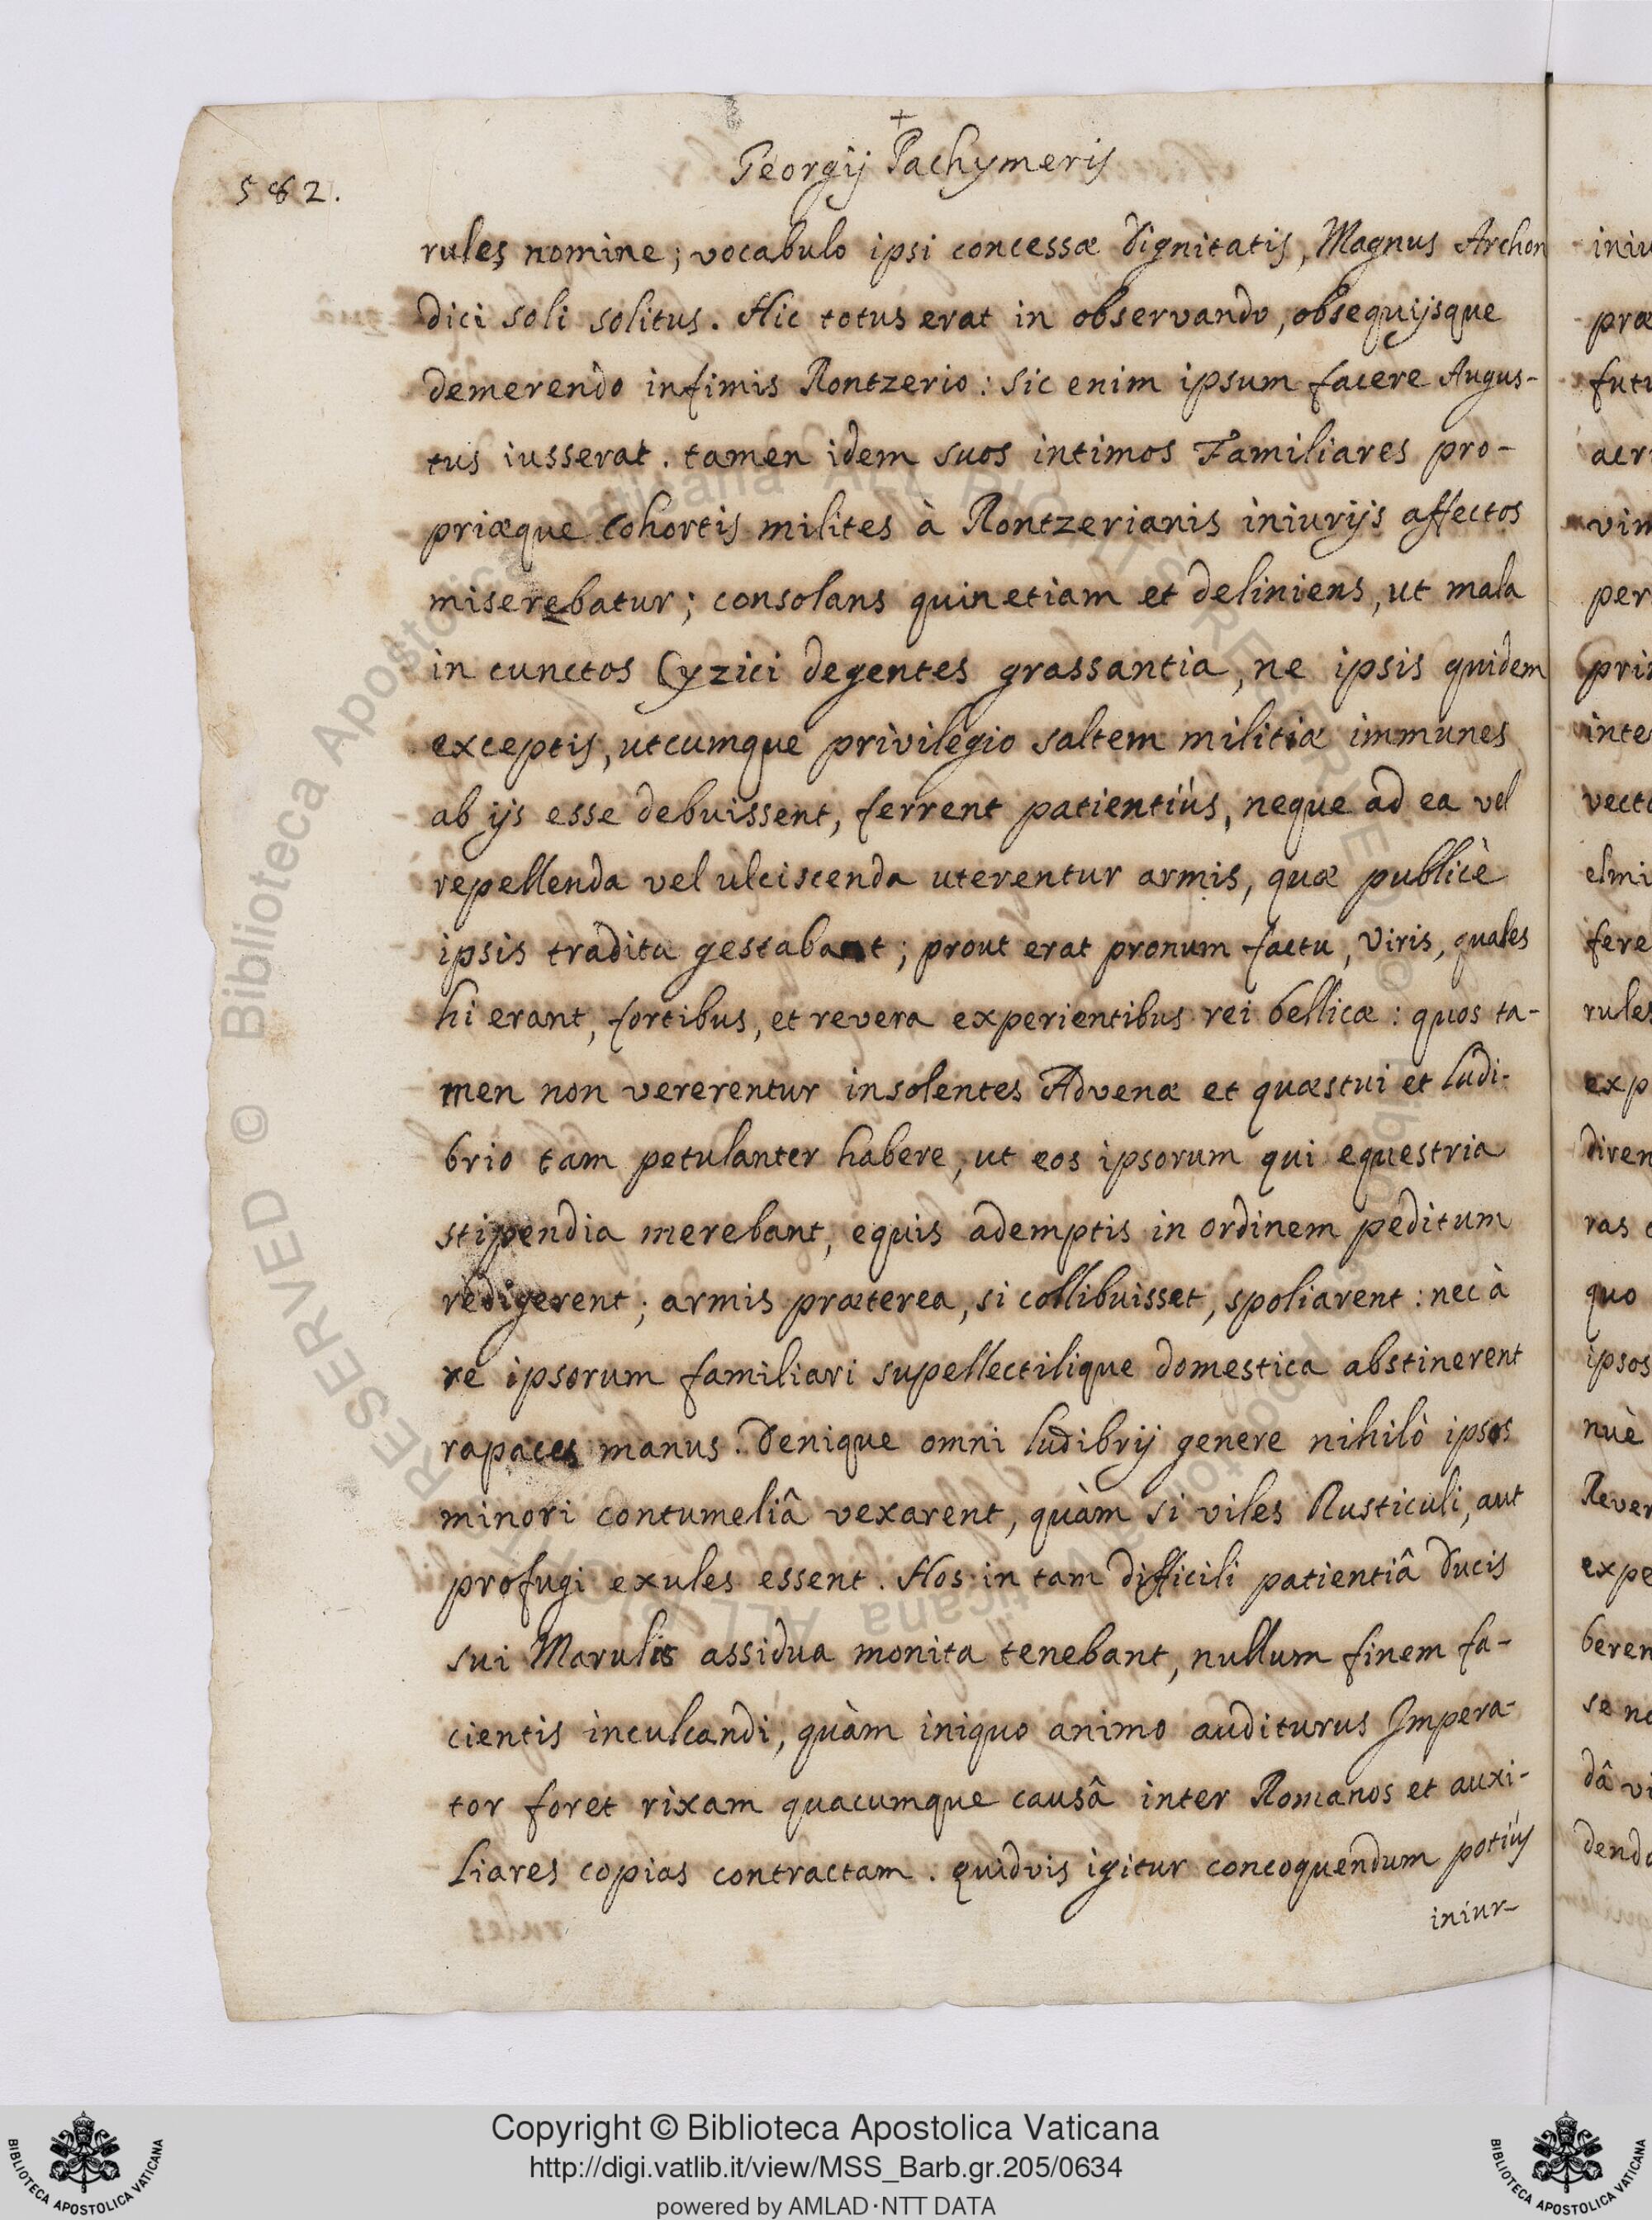 +
582.
Georgij Pachymeris
rules nomine; vocabulo ipsi concessæ dignitatis, Magnus Archon
dici soli solitus. Hic totus erat in observando, obsequijsque
demerendo infimis Rontzerio: sic enim ipsum facere Augus-
tus iusserat. tamen idem suos intimos Familiares pro-
priæque Cohortis milites à Rontzerianis iniurijs affectos
miserebatur; consolans quinetiam et deliniens, ut mala
in cunctos Cyzici degentes grassantia, ne ipsis quidem
exceptis, utcumque privilegio saltem militiæ immunes
ab ijs esse debuissent, ferrent patientiús, neque ad ea vel
repellenda vel ulciscenda uterentur armis, quæ publicè
ipsis tradita gestabant; prout erat pronum factu, Viris, quales
hi erant, fortibus, et revera experientibus rei bellicæ: quos ta-
men non vererentur insolentes Advenæ et quæstui et ludi-
brio tam petulanter habere, ut eos ipsorum qui equestria
stipendia merebant, equis ademptis in ordinem peditum
redigerent; armis præterea, si collibuisset, spoliarent: nec à
re ipsorum familiari supellectilique domestica abstinerent
rapaces manus. Denique omni ludibrij genere nihilò ipsos
minori contumeliâ vexarent, quàm si viles Rusticuli, aut
profugi exules essent. Hos in tam difficili patientiâ Ducis
sui Marulis assidua monita tenebant, nullum finem fa-
cientis inculcandi, quàm iniquo animo auditurus Impera-
tor foret rixam quacumque causâ inter Romanos et auxi-
liares copias contractam. quidvis igitur concoquendum potiús
iniur-
iniu
præ
futu
acri
vin
per
prin
inte
vecti
elmi
fere
rules
exp
diren
ras
quo
ipsos
nuè
Rever
expe
beren
se no
dâ vi
dendo
Copyright © Biblioteca Apostolica Vaticana
http://digi.vatlib.it/view/MSS_Barb.gr.205/0634
powered by AMLAD·NTT DATA
BIBLIOTECA APOSTOLICA VATICANA
BIBLIOTECA APOSTOLICA VATICANA